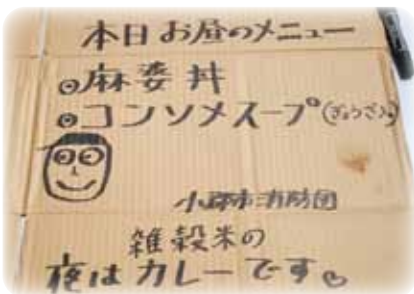 本日お昼のメニュー
◎麻婆丼
◎コンソメスープ(ぎょうざ入)
小郡市消防団
雑穀米の
夜はカレーです